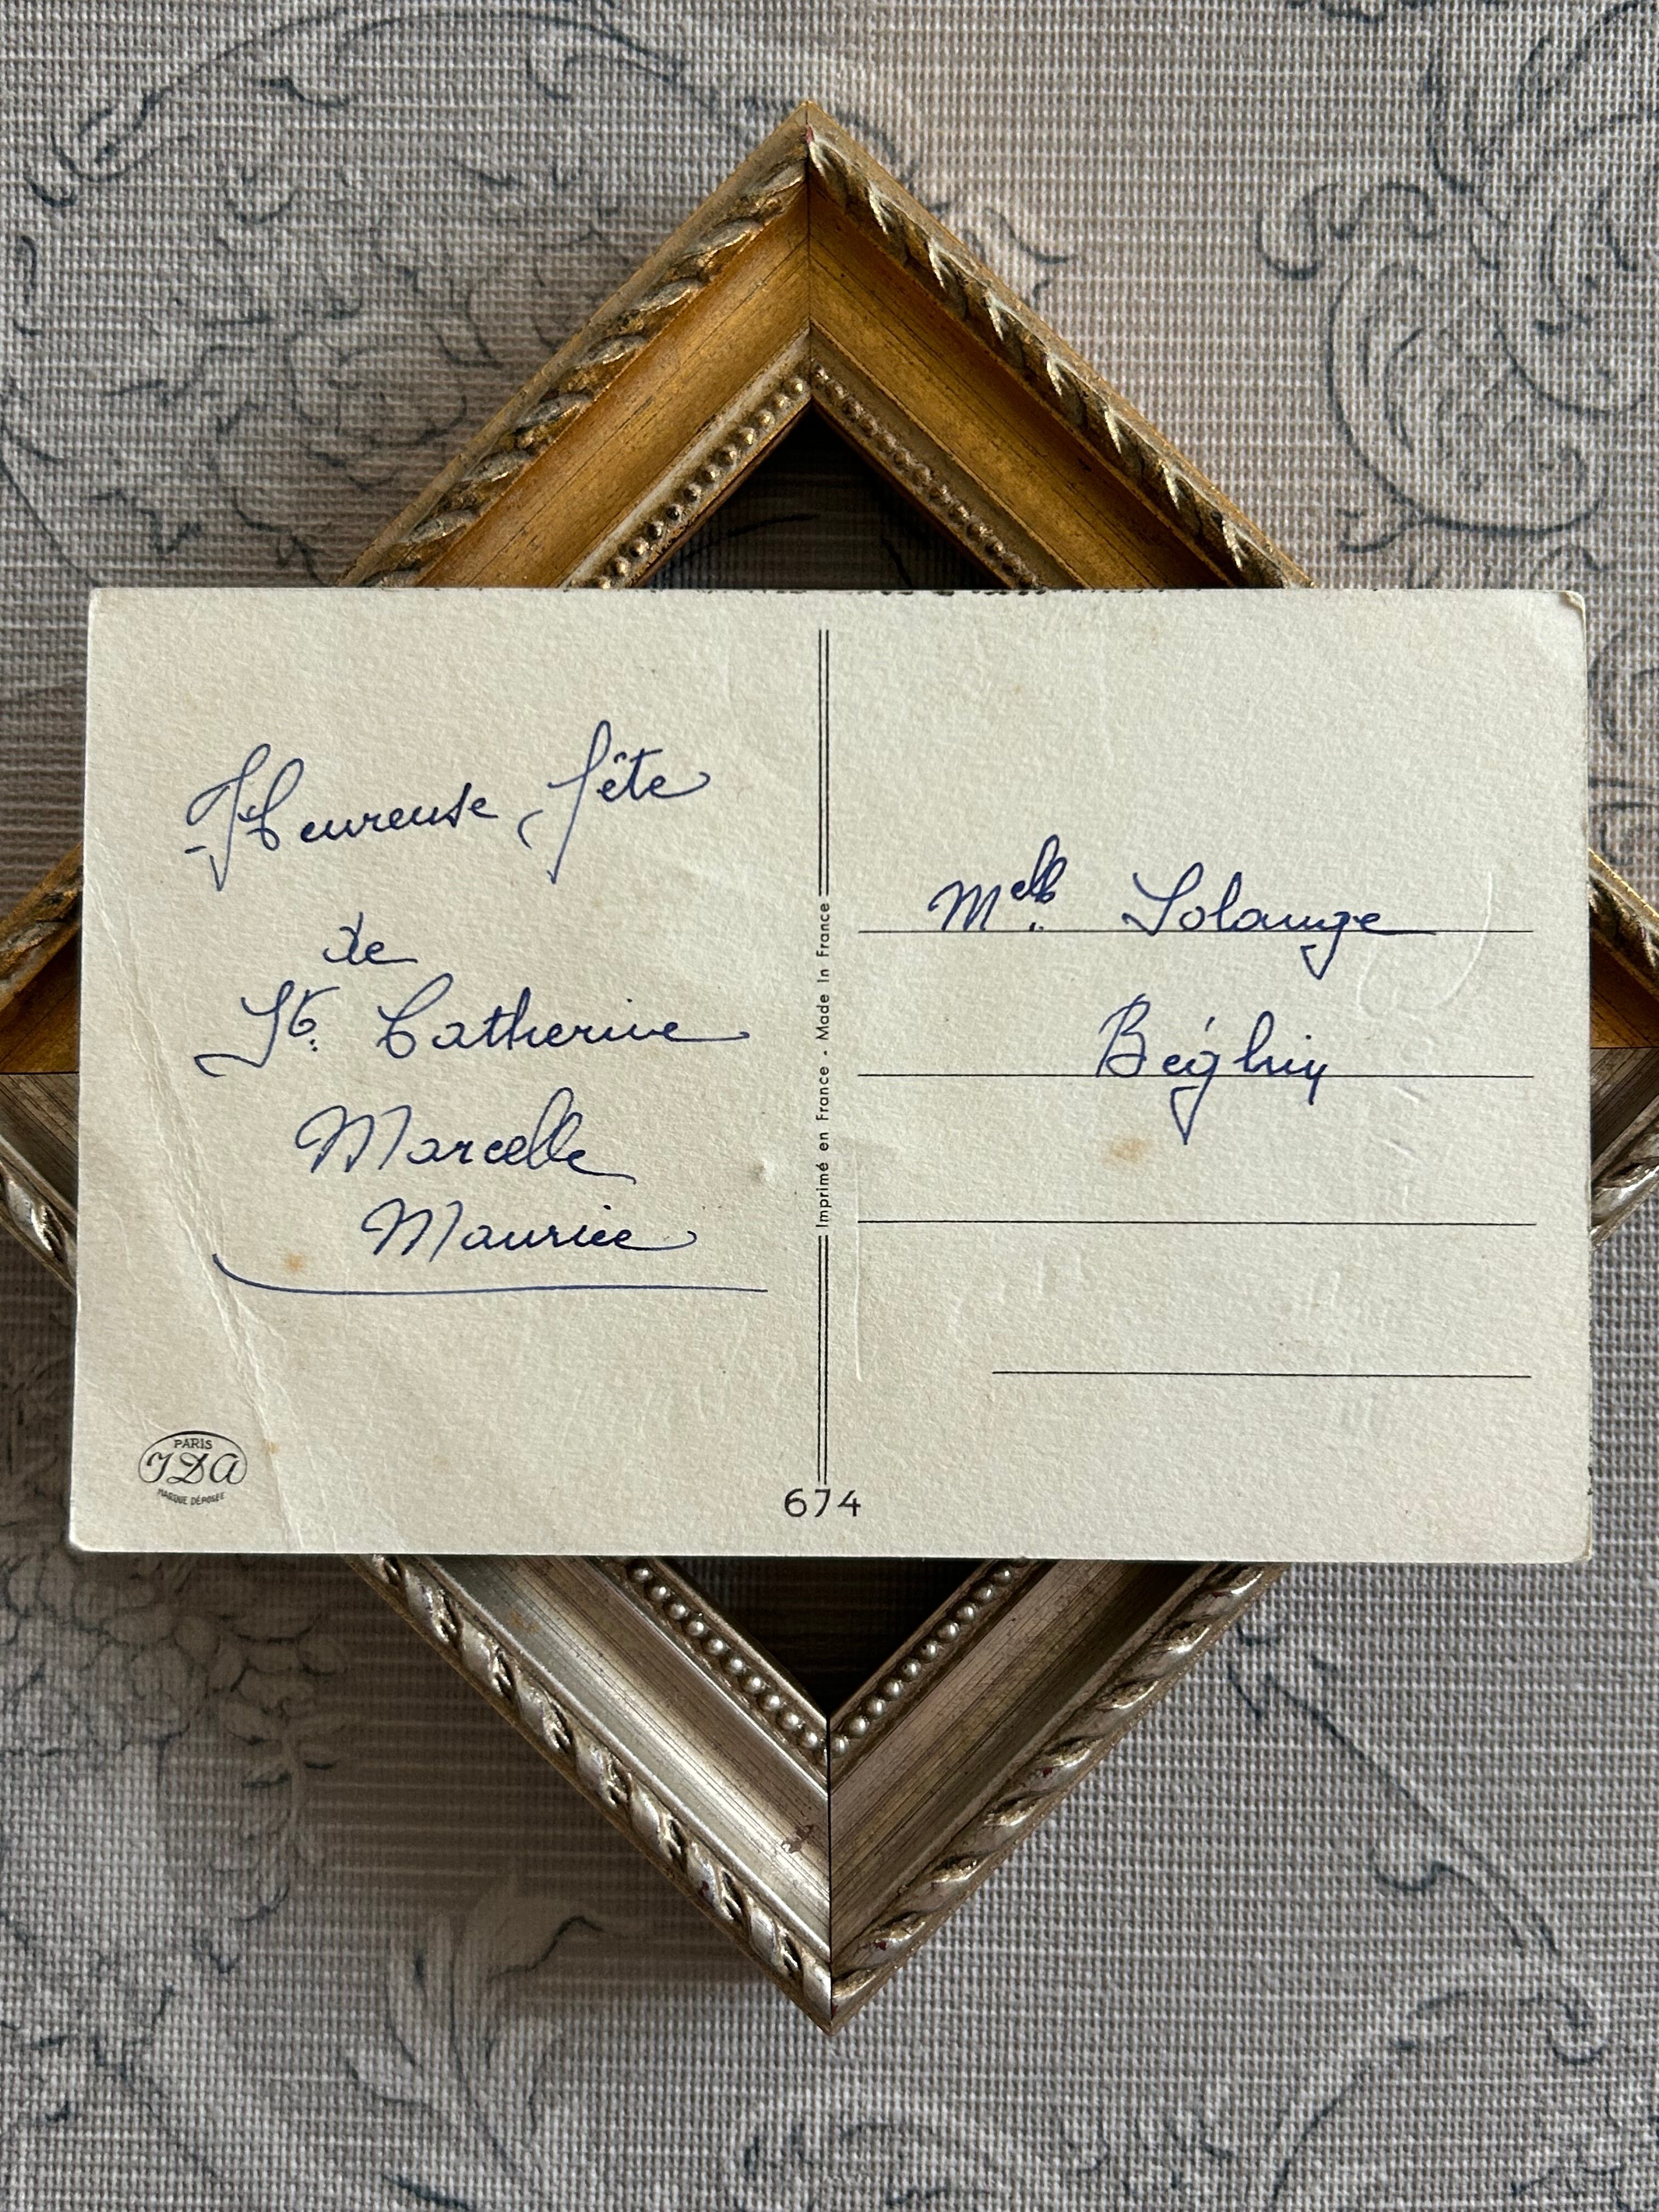 Heureuse fête
de
Ste. Catherine
Marcelle
Maurice
PARIS
JDA
MARQUE DÉPOSÉE
Imprimé en France - Made In France
674
Melle. Solange
Béghin